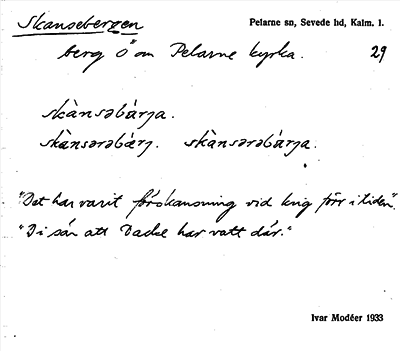 Skansebergen
Pelarne sn, Sevede hd, Kalm. l.
berg Ö om Pelarne kyrka. 29
skànsəbàrja.
skànsərəbàrj. skànsərəbàrja.
"Det har varit förskansning vid krig förr i tiden".
"Di sår att Dacke har vatt där."
Ivar Modéer 1933